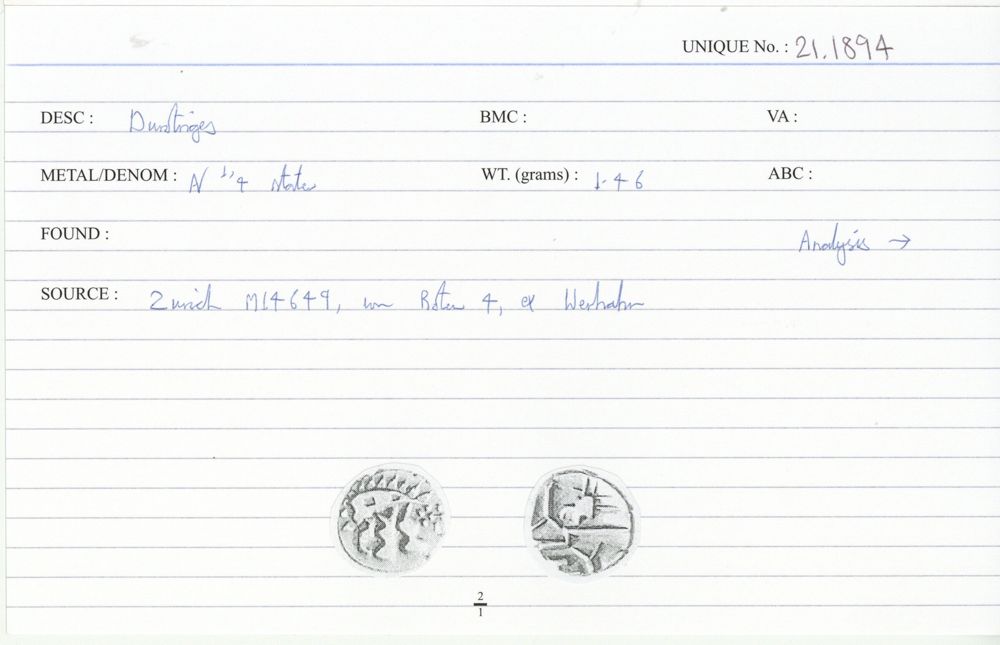 UNIQUE No. : 21.1894
DESC : Durotriges BMC : VA :
METAL/DENOM : N 1/4 stater WT. (grams) : 1.46 ABC :
FOUND :
Analysis →
SOURCE : Zurich M14649, von Roten 4, ex Werhahn
2
1